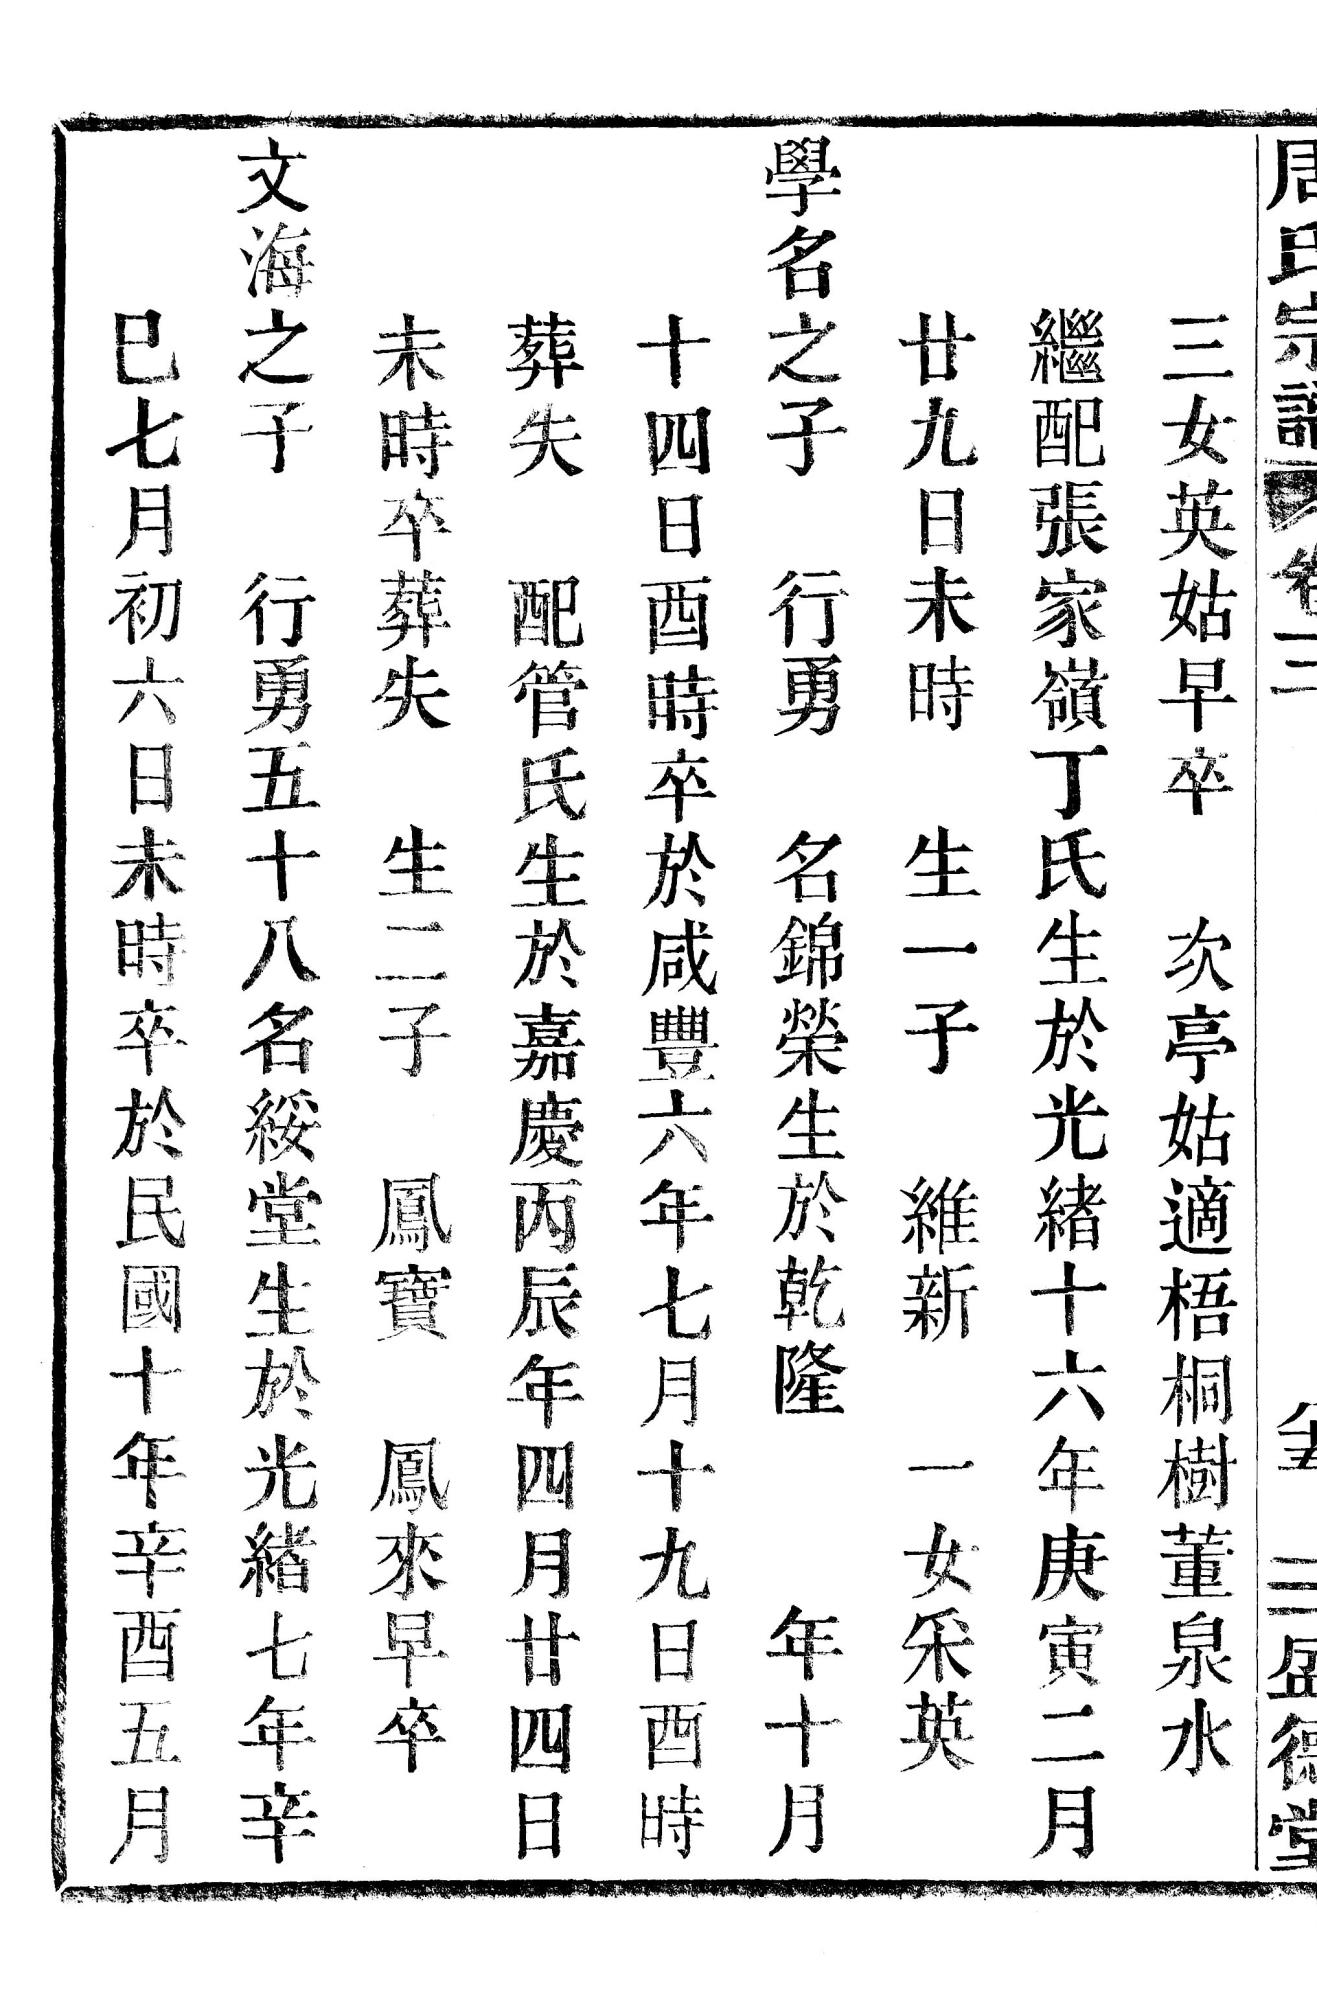 周氏宗譜 卷二 盛德堂
三女英姑早卒 次亭姑適梧桐樹董泉水
繼配張家嶺丁氏生於光緒十六年庚寅二月
廿九日未時 生一子 維新 一女采英
學名之子 行勇 名錦榮生於乾隆 年十月
十四日酉時卒於咸豐六年七月十九日酉時
葬失 配管氏生於嘉慶丙辰年四月廿四日
未時卒葬失 生二子 鳳寶 鳳來早卒
文海之子 行勇五十八名綏堂生於光緒七年辛
巳七月初六日未時卒於民國十年辛酉五月